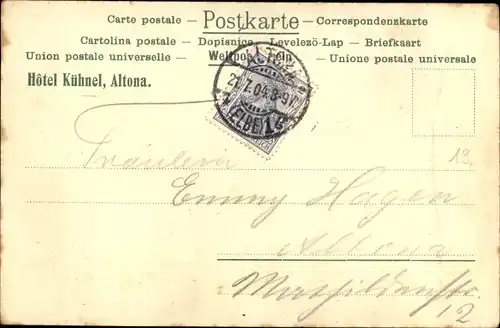 Carte postale – Postkarte – Correspondenzkarte
Cartolina postale – Dopisnice – Levelezö-Lap – Briefkaart
Union postale universelle – Weltpostverein – Unione postale universale
Hôtel Kühnel, Altona.
21.7.04.8-9V
(ELBE) 1
Fräulein
Emmy Hagen
Altona
Mathildenstr.
12